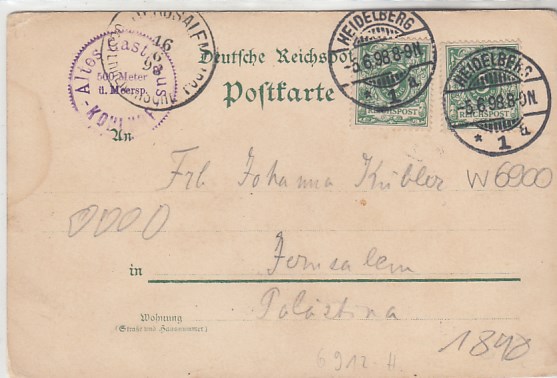 JERUSALEM
16
6
98
Altes Gasthaus
500 Meter
ü. Meersp.
Deutsche Reichspost
Postkarte
HEIDELBERG
-5.6.98.8-9N.
* 1 a.
REICHSPOST
HEIDELBERG
-5.6.98.8-9N.
* 1 a.
REICHSPOST
An
Frl Johanna Kübler
W6900
0000
in Jerusalem
Palästina
Wohnung
(Straße und Hausnummer)
1898
6912-H